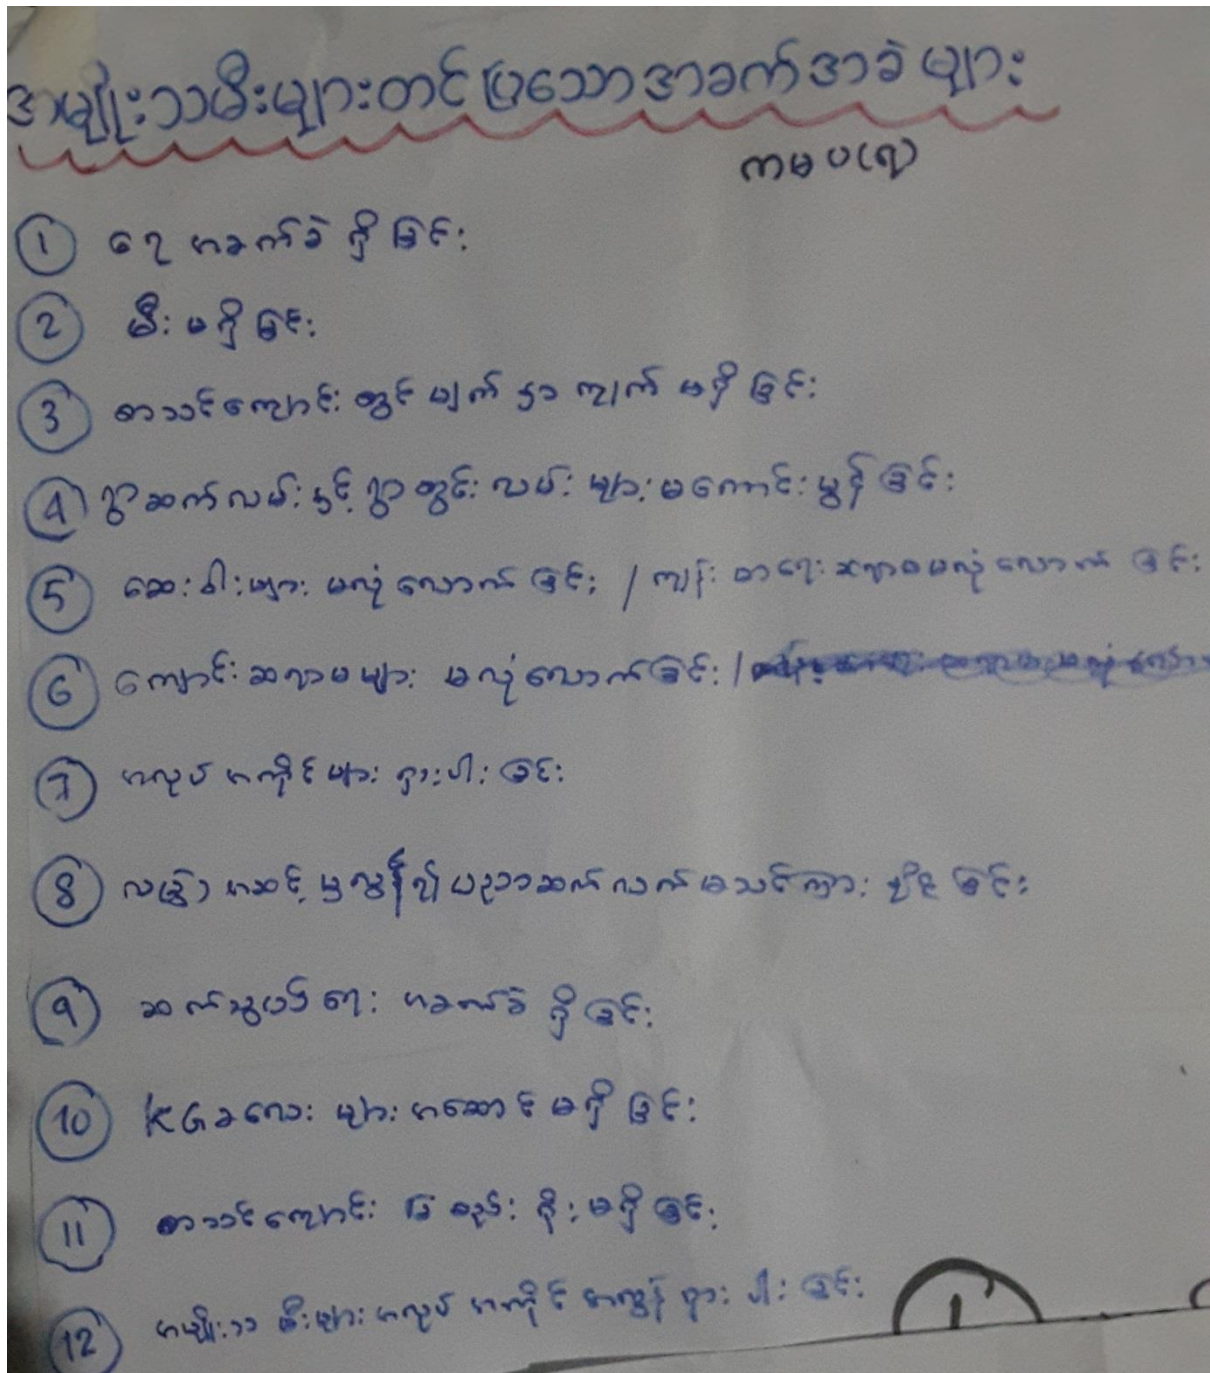 အမျိုးသမီးများတင်ပြသောအခက်အခဲများ
ကမပ(ရ)
၁ ရေအခက်ခဲရှိခြင်း
2 မီးမရှိခြင်း
3 စာသင်ကျောင်းတွင်မျက်နှာကျက်မရှိခြင်း
4 ရွာဆက်လမ်းနှင့်ရွာတွင်းလမ်းများမကောင်းမွန်ခြင်း
5 ဆေးဝါးများမလုံလောက်ခြင်း / ကျန်းမာရေးဆရာမမလုံလောက်ခြင်း
6 ကျောင်းဆရာမများမလုံလောက်ခြင်း /
7 အလုပ်အကိုင်များရှားပါးခြင်း
8 အဆင့်မှလွန်၍ပညာဆက်လက်မသင်ကြားနိုင်ခြင်း
9 ဆက်သွယ်ရေးအခက်ခဲရှိခြင်း
10 KGခလေးများအဆောင်မရှိခြင်း
11 စာသင်ကျောင်းခြံစည်းရိုးမရှိခြင်း
12 အမျိုးသမီးများအလုပ်အကိုင်အလွန်ရှားပါးခြင်း
1